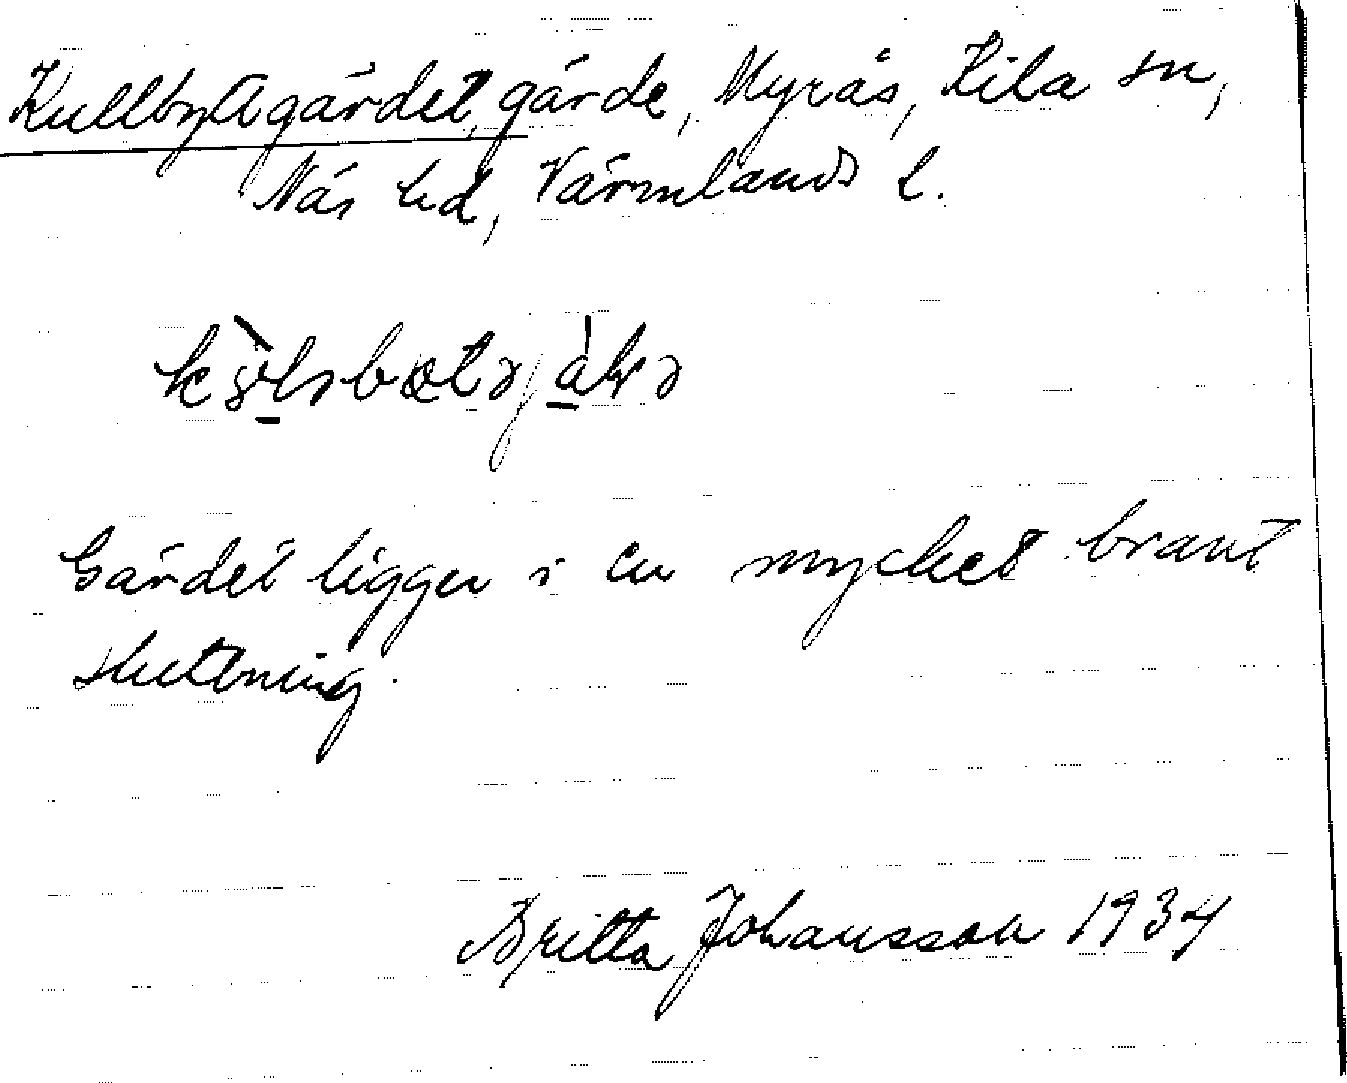 Kullbyttgärdet, gärde, Myrås, Kila sn,
Näs hd, Värmlands l.
Gärdet ligger i en mycket brant
sluttning.
Britta Johansson 1934